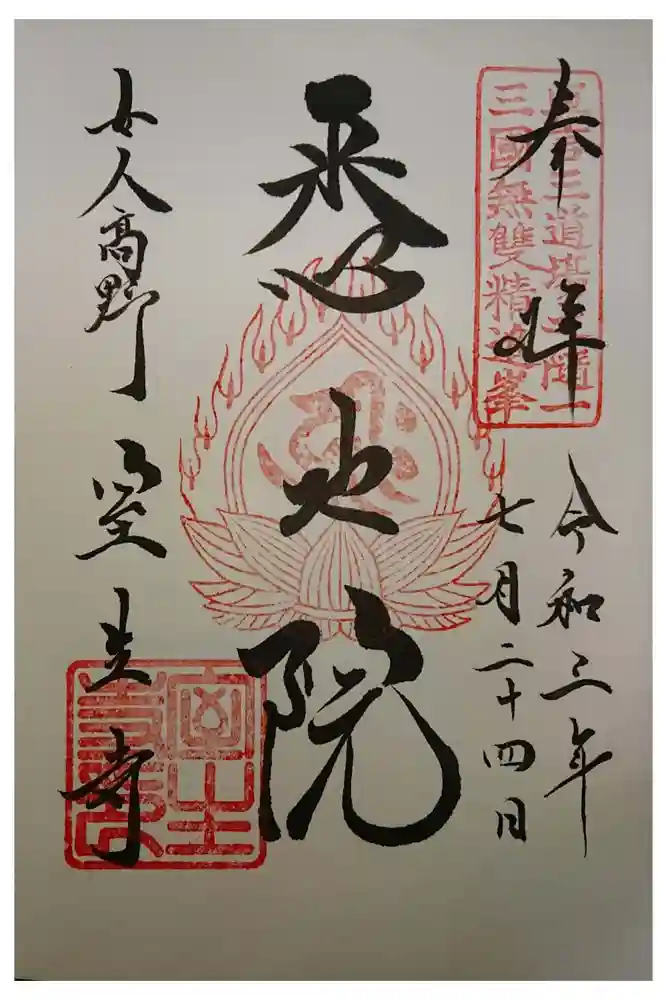 奉拝
三國無雙精進峯
令和三年
七月二十四日
悉地院
女人高野 室生寺